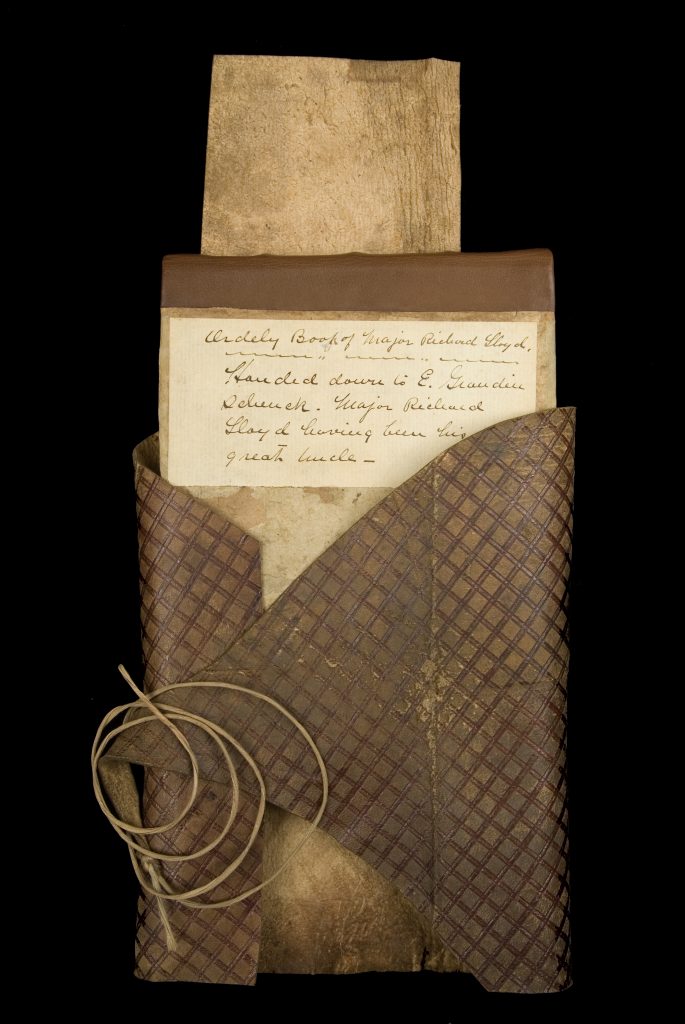 Ordely Book of Major Richard Lloyd.
Handed down to E. Grandin
Schenck. Major Richard
Lloyd having been his
great Uncle —